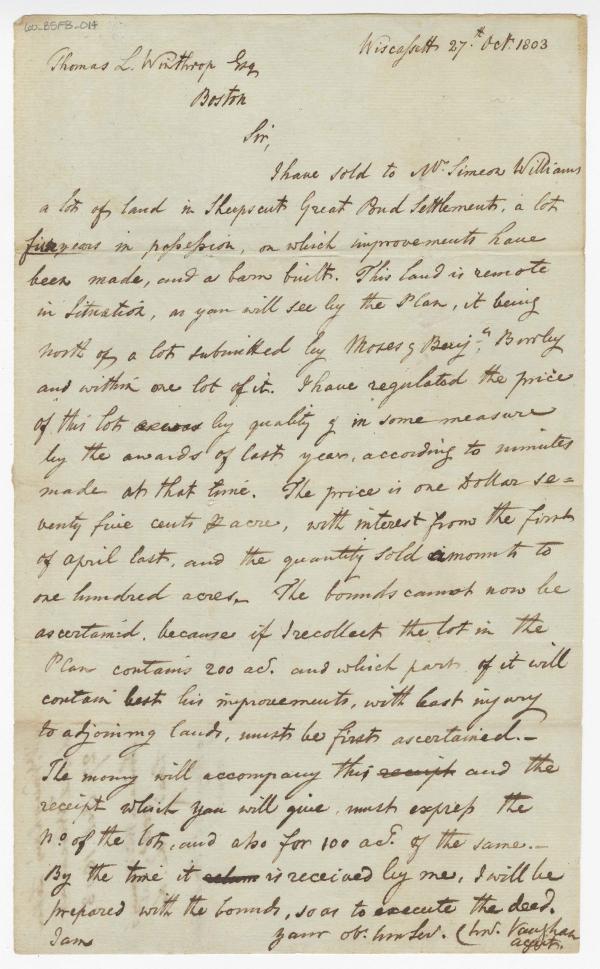 60_BSFB_014
Wiscassett 27.th Oct. 1803
Thomas L. Winthrop Esq
Boston
Sir,
I have sold to Mr. Simeon Williams
a lot of land in Sheepscut Great Pond Settlements, a lot
five years in possession, on which improvements have
been made, and a barn built. This land is remote
in Situation, as you will see by the Plan, it being
north of a lot submitted by Moses & Benj.n Bowley
and within one lot of it. I have regulated the price
of this lot by quality & in some measure
by the awards of last year, according to minutes
made at that time. The price is one Dollar se=
venty five cents ⅌ acre, with interest from the first
of april last, and the quantity sold amounts to
one hundred acres_ The bounds cannot now be
ascertained, because if I recollect the lot in the
Plan contains 200 acs. and which part of it will
contain best his improvements, with least injury
to adjoining lands, must be first ascertained._
The money will accompany this receipt and the
receipt which you will give, must express the
No. of the lot, and also for 100 acs. of the same._
By the time it is received by me, I will be
prepared with the bounds, so as to execute the deed.
I am your ob. hm Sev. Chs. Vaughan
agent.